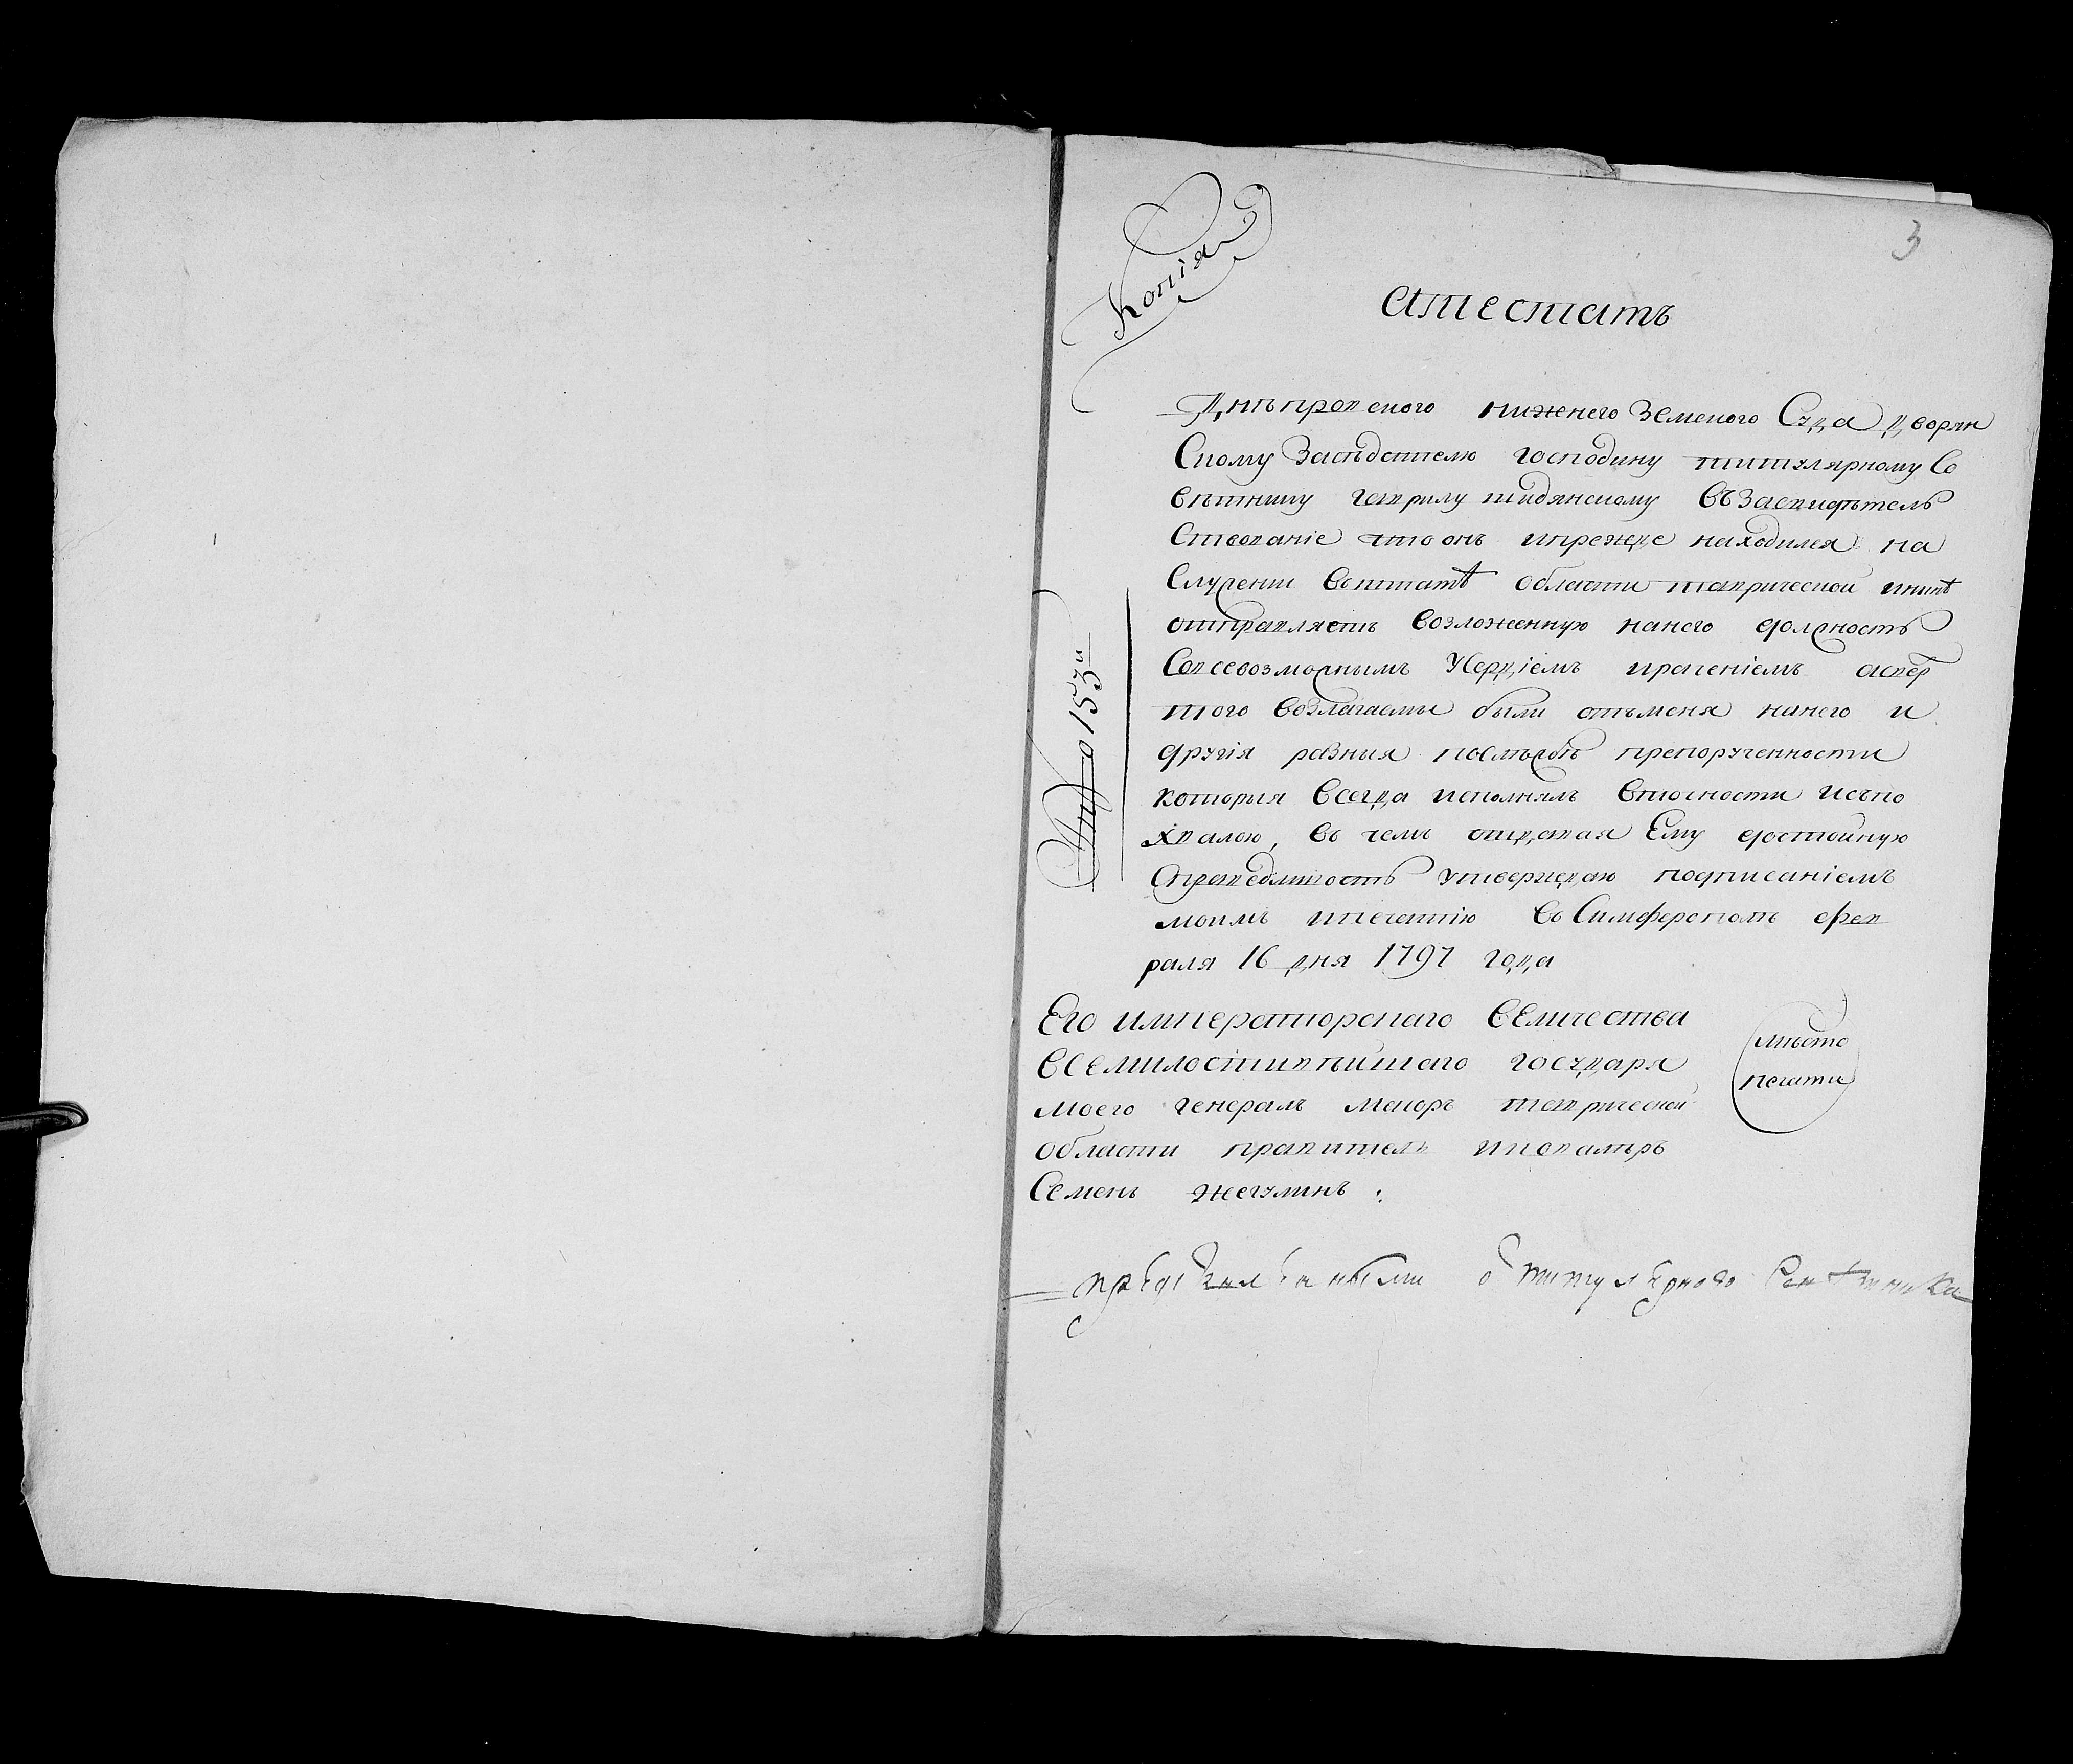 3
Копія
атестатъ
Днѣпровскаго нижнего Земскаго Суда дворян
Скому Засѣдателю господину титулярному Со
вѣтнику Гаврилу Шидянскому въ Засвидѣтель
Ствованіе что онъ и прежде находился на
Служеніи въ штатѣ области таврической и нынѣ
отправляетъ возложенную на него должность
Со всевозможнымъ Усердіемъ и раченіемъ а свер
того возлагаемы были отъ меня на него и
другія разныя препорученности
которыя всегда исполнялъ в точности и съ по
хвалою, въ чемъ отдавая Ему достойную
Справедливость утверждаю подписаніемъ
моимъ и печатію въ Симферополѣ фев
раля 16 дня 1797 года
№ 153й
Его императорскаго Величества
всемилостивѣйшаго государя
моего генералъ маіоръ таврической
области правитель и кавалеръ
Семенъ Жегулинъ :
мѣсто
печати
титулярнаго Советника